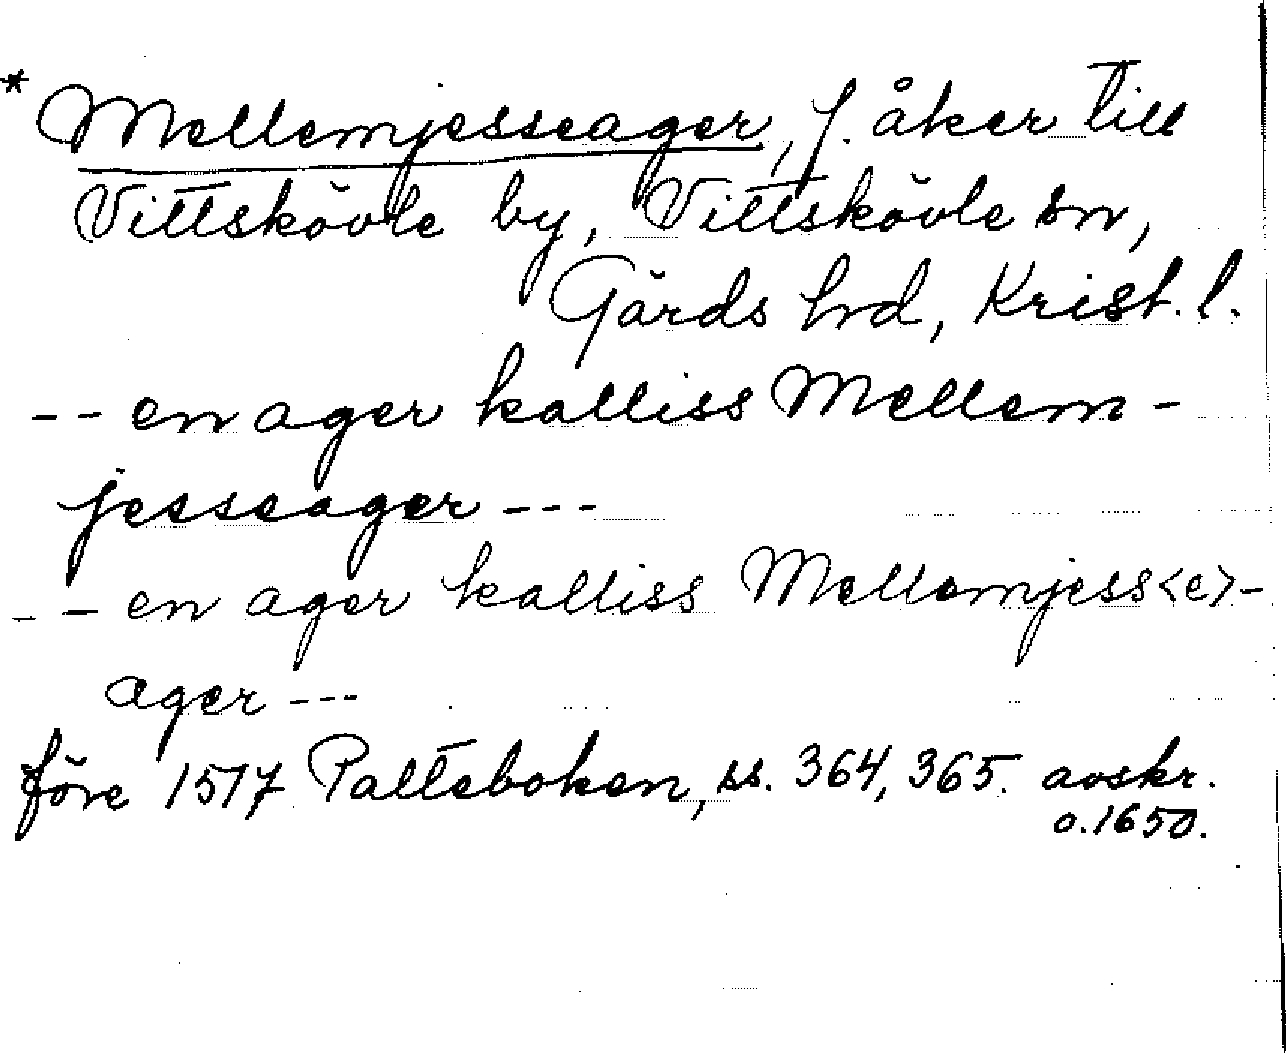 * Mellemjesseager, f. åker till
Vittskövle by, Vittskövle sn,
Gärds hrd, Krist. l.
-- en ager kalliss Mellem-
jesseager ---
-- en ager kalliss Mellemjess<e>-
ager ---
före 1517 Palteboken, ss. 364, 365. avskr.
o. 1650.